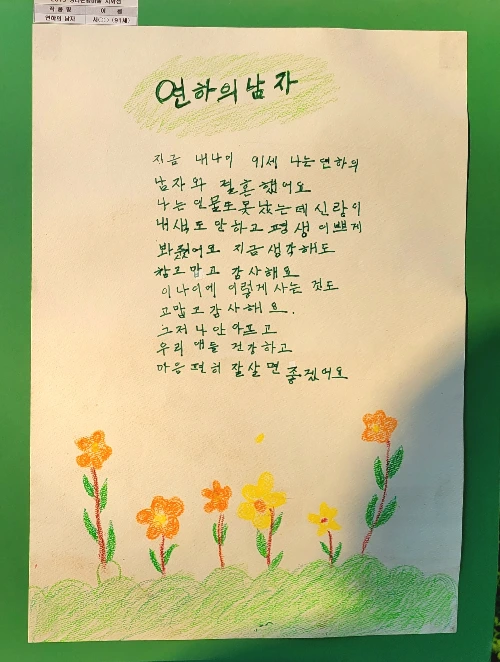 작 품 명 이 름
연하의 남자 (91세)
연하의 남자
지금 내나이 91세 나는 연하의
남자와 결혼했어요
나는 인물도 못났는데 신랑이
내색도 안하고 평생 이쁘게
봐줬어요 지금 생각해도
참고맙고 감사해요
이나이에 이렇게 사는 것도
고맙고 감사해요.
그저 나 안아프고
우리 애들 건강하고
마음 편히 잘살면 좋겠어요